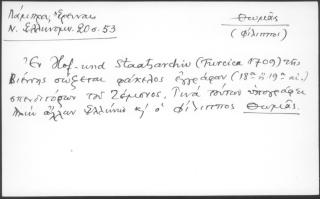 Λάμπρος, Ἔρευναι
Ν. Ἑλληνομν. 20 σ. 53
Θωμᾶς
(Φίλιππος)
Ἐν Hof- und Staatsarchiv (Turcica 1709) τῆς
Βιέννης σώζεται φάκελος ἐγγράφων (18ου ἢ 19ου αἰ.)
τοῦ Ζέμονος. Τινὰ τούτων ὑπογράφει
ἄλλων Ἑλλήνων κ' ὁ Φίλιππος Θωμᾶς.